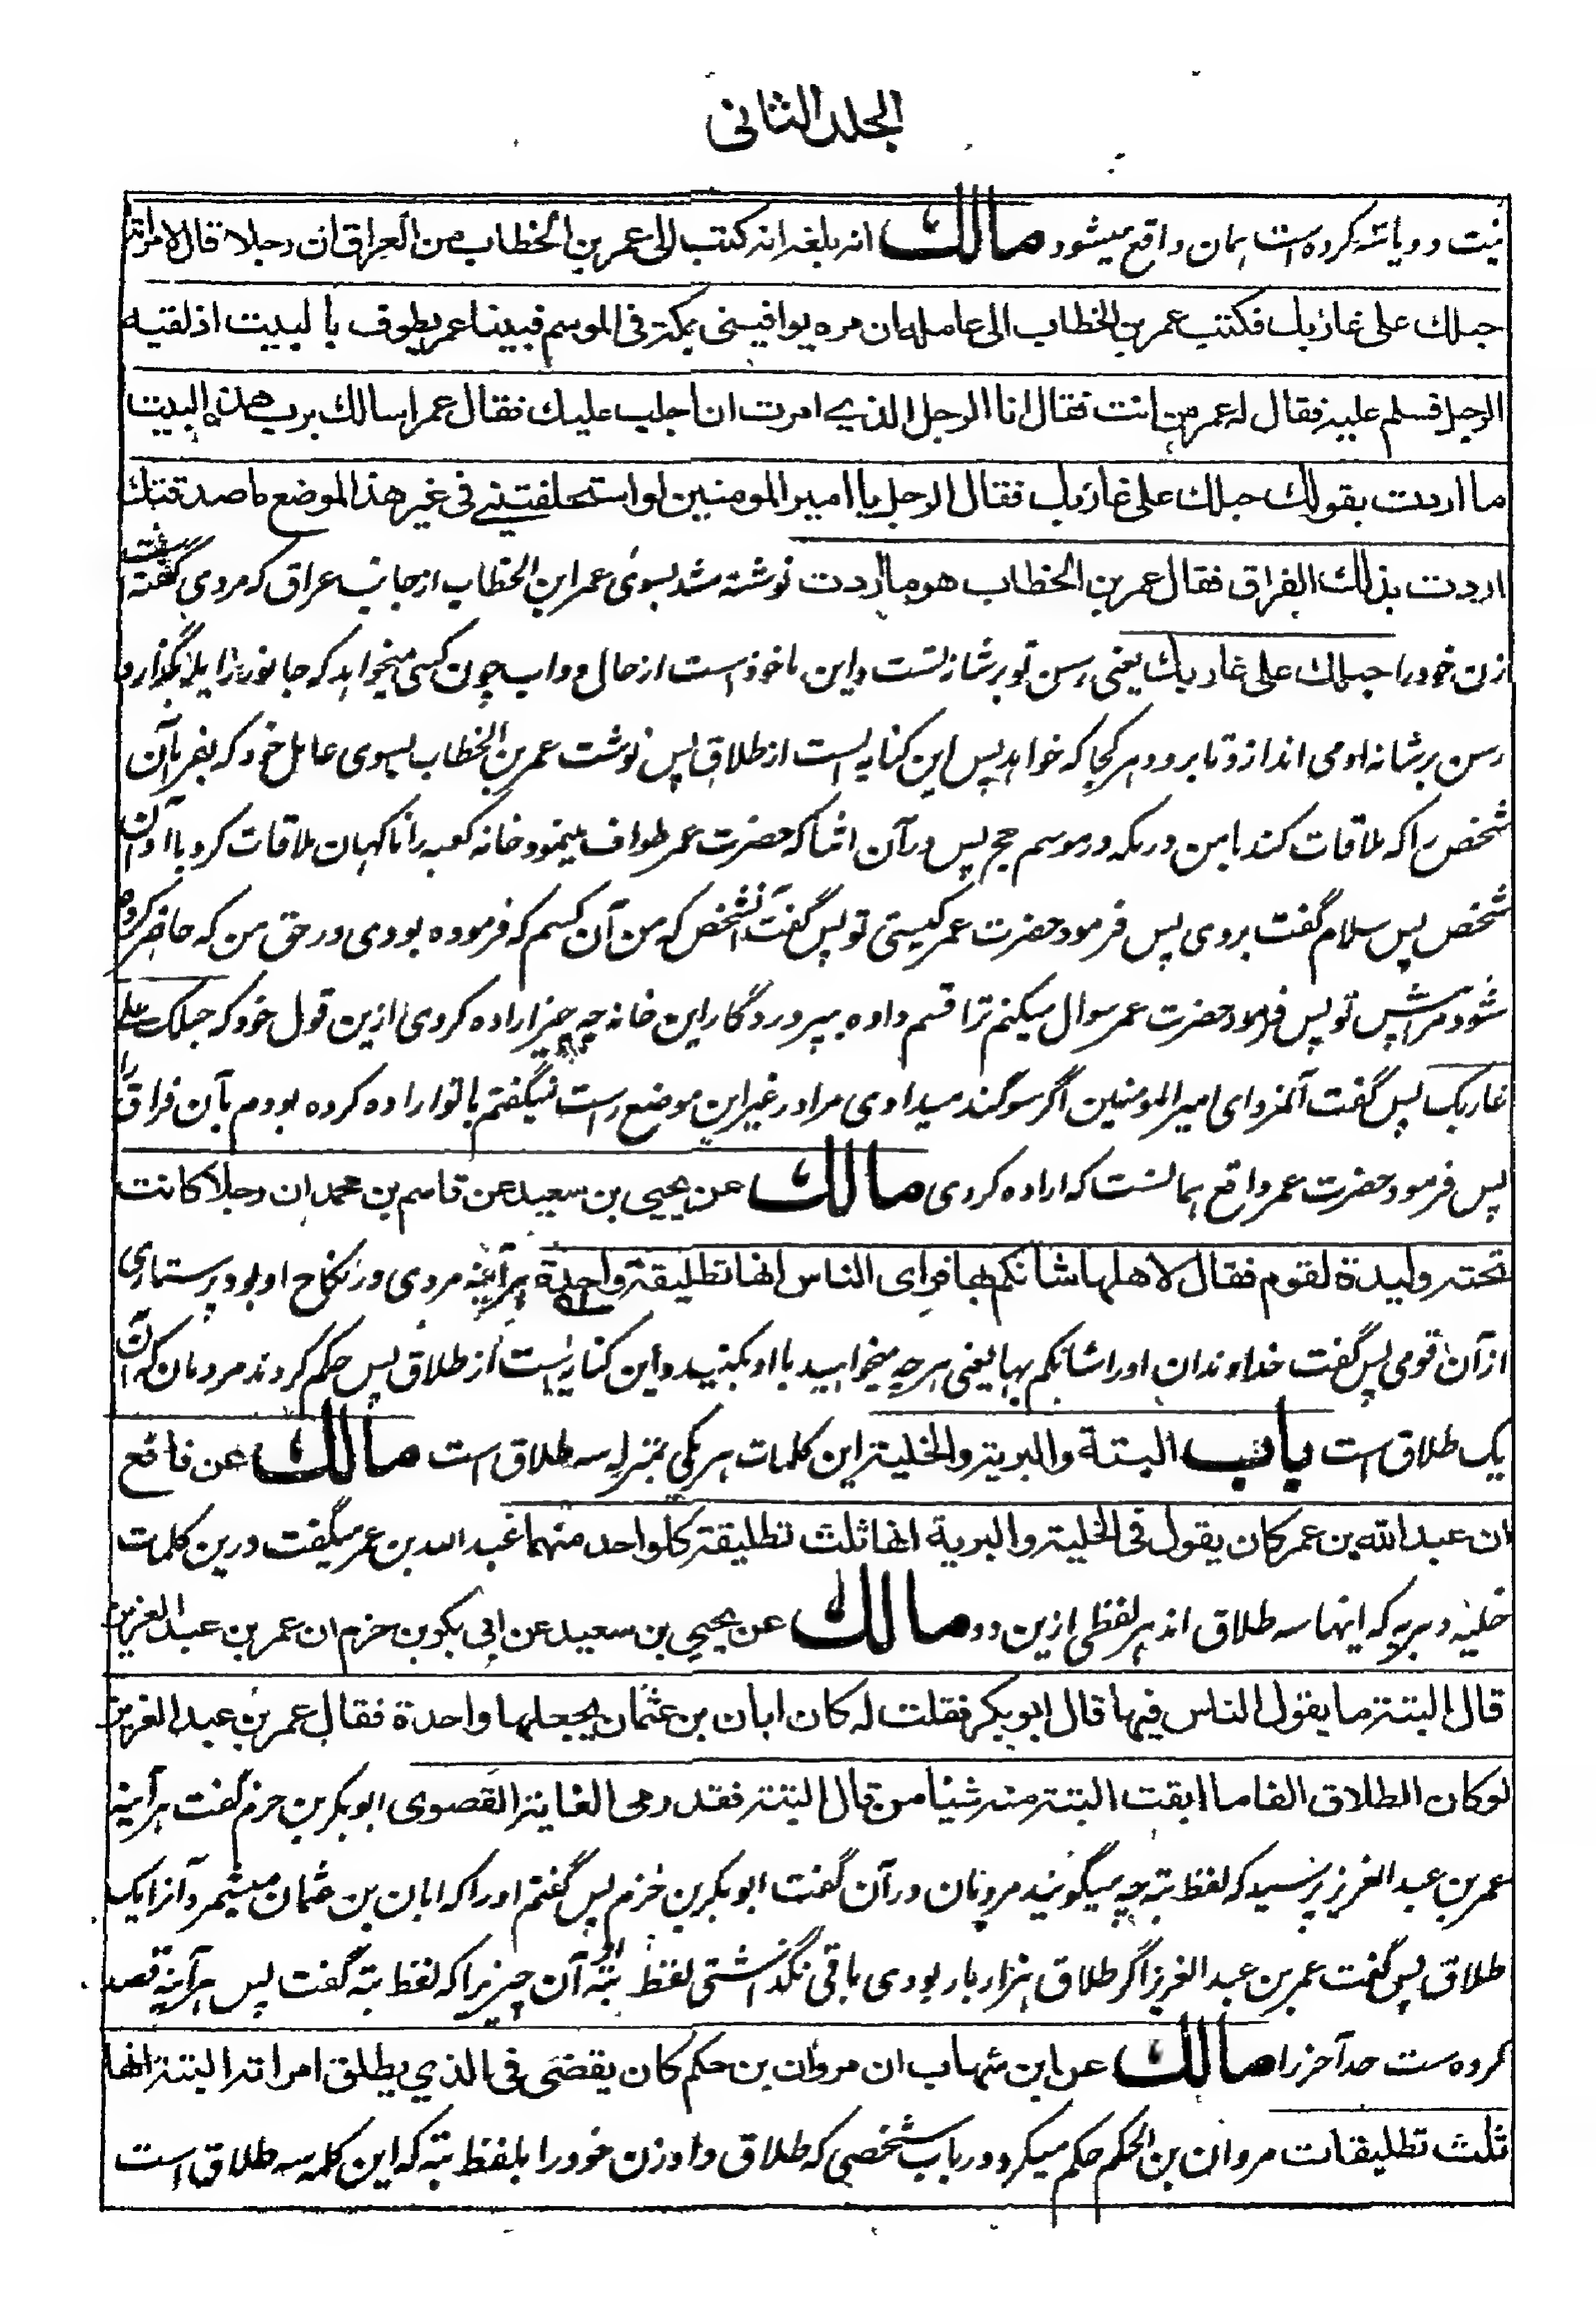 الجلد الثانی
نیت دو یا سه کرده است همان واقع میشود مالك انه بلغه انه كتب الى عمر بن الخطاب من العراق ان رجلا قال لامراته
حبلك على غاربك فكتب عمر بن الخطاب الى عامله ان مره يوافيني بمكة في الموسم فبينا عمر يطوف بالبيت اذ لقيه
الرجل فسلم عليه فقال له عمر من انت فقال انا الرجل الذي امرت ان اجلب عليك فقال عمر اسالك برب هذه البيت
ما اردت بقولك حبلك على غاربك فقال الرجل يا امير المومنين لو استحلفتني في غير هذا الموضع ما صدقتك
اردت بذلك الفراق فقال عمر بن الخطاب هو ما اردت نوشته شد بسوی عمر ابن الخطاب از جانب عراق که مردی گفته است
زن خود را حبلك على غاربك یعنی رسن تو بر شانه تست و این ماخوذ است از حال دواب چون کسی میخواهد که جانور را یله بگذارد
رسن بر شانه او می اندازد تا برود هر کجا که خواهد پس این کنایه است از طلاق پس نوشت عمر بن الخطاب بسوی عامل خود که بفرما آن
شخص را که ملاقات کند با من در مکه در موسم حج پس در آن اثنا که حضرت عمر طواف مینمود خانه کعبه را ناگهان ملاقات کرد با او آن
شخص پس سلام گفت بر وی پس فرمود حضرت عمر کیستی تو پس گفت آنشخص که من آن کسم که فرموده بودی در حق من که حاضر کرده
شود مرا پیش تو پس فرمود حضرت عمر سوال میکنم ترا قسم داده بپروردگار این خانه چه چیز اراده کردی ازین قول خود که حبلک علی
غاربک پس گفت آنمرد ای امیر المومنین اگر سوگند میدادی مرا در غیر این موضع راست نمیگفتم با تو اراده کرده بودم بآن فراق را
پس فرمود حضرت عمر واقع همانست که اراده کردی مالك عن يحيى بن سعيد عن قاسم بن محمد ان رجلا كانت
تحته وليدة لقوم فقال لاهلها شانكم بها فراى الناس انها تطليقة واحدة هرآئینه مردی در نکاح او بود پرستاری
از آن قومی پس گفت خداوندان او را شانکم بها یعنی هر چه میخواهید با او بکنید و این کنایه است از طلاق پس حکم کردند مردمان که آن
یک طلاق است باب البتة والبرية والخلية این کلمات هر یکی بمنزله سه طلاق است مالك عن نافع
ان عبد الله بن عمر كان يقول في الخلية والبرية انها ثلث تطليقة كل واحد منهما عبد الله بن عمر میگفت درین کلمات
خلیه و بریه که اینها سه طلاق اند هر لفظی ازین دو مالك عن يحيى بن سعيد عن ابي بكر بن حزم ان عمر بن عبد العزيز
قال البتة ما يقول الناس فيها قال ابو بكر فقلت له كان ابان بن عثمان يجعلها واحدة فقال عمر بن عبد العزيز
لو كان الطلاق الفا ما ابقت البتة منه شيئا من قال البتة فقد رمى الغاية القصوى ابو بکر بن حزم گفت هرآینه
عمر بن عبد العزیز پرسید که لفظ بته چه میگویند مردمان در آن گفت ابو بکر بن خزم پس گفتم او را که ابان بن عثمان میشمرد آنرا یک
طلاق پس گفت عمر بن عبد العزیز اگر طلاق هزار بار بودی باقی نگذاشتی لفظ بته از آن چیزی را که لفظ بته گفت پس هرآینه قصد
کرده ست حد آخر را مالك عن ابن شهاب ان مروان بن حكم كان يقضى في الذي يطلق امراته البتة انها
ثلث تطليقات مروان بن الحکم حکم میکرد در باب شخصی که طلاق داد زن خود را بلفظ بته که این کلمه سه طلاق است